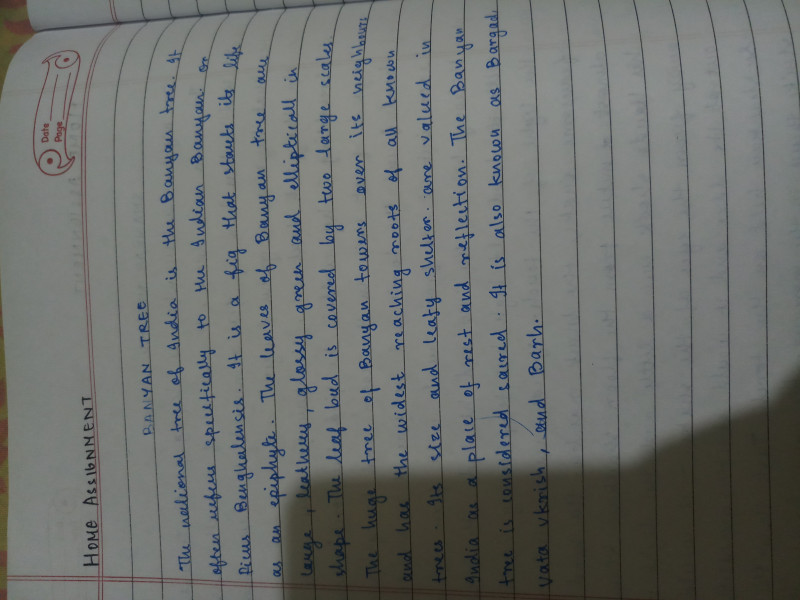 Date
Page
HOME ASSIGNMENT
BANYAN TREE
The national tree of India is the Banyan tree. It
often refers specifically to the Indian Banyan or
Ficus Benghalensis. It is a fig that starts its life
as an epiphyte. The leaves of Banyan tree are
large, leathery, glossy green and elliptical in
shape. The leaf bud is covered by two large scales.
The huge tree of Banyan towers over its neighbours
and has the widest reaching roots of all known
trees. Its size and leafy shelter are valued in
India as a place of rest and reflection. The Banyan
tree is considered sacred. It is also known as Bargad
Vata vkrish, and Barh.